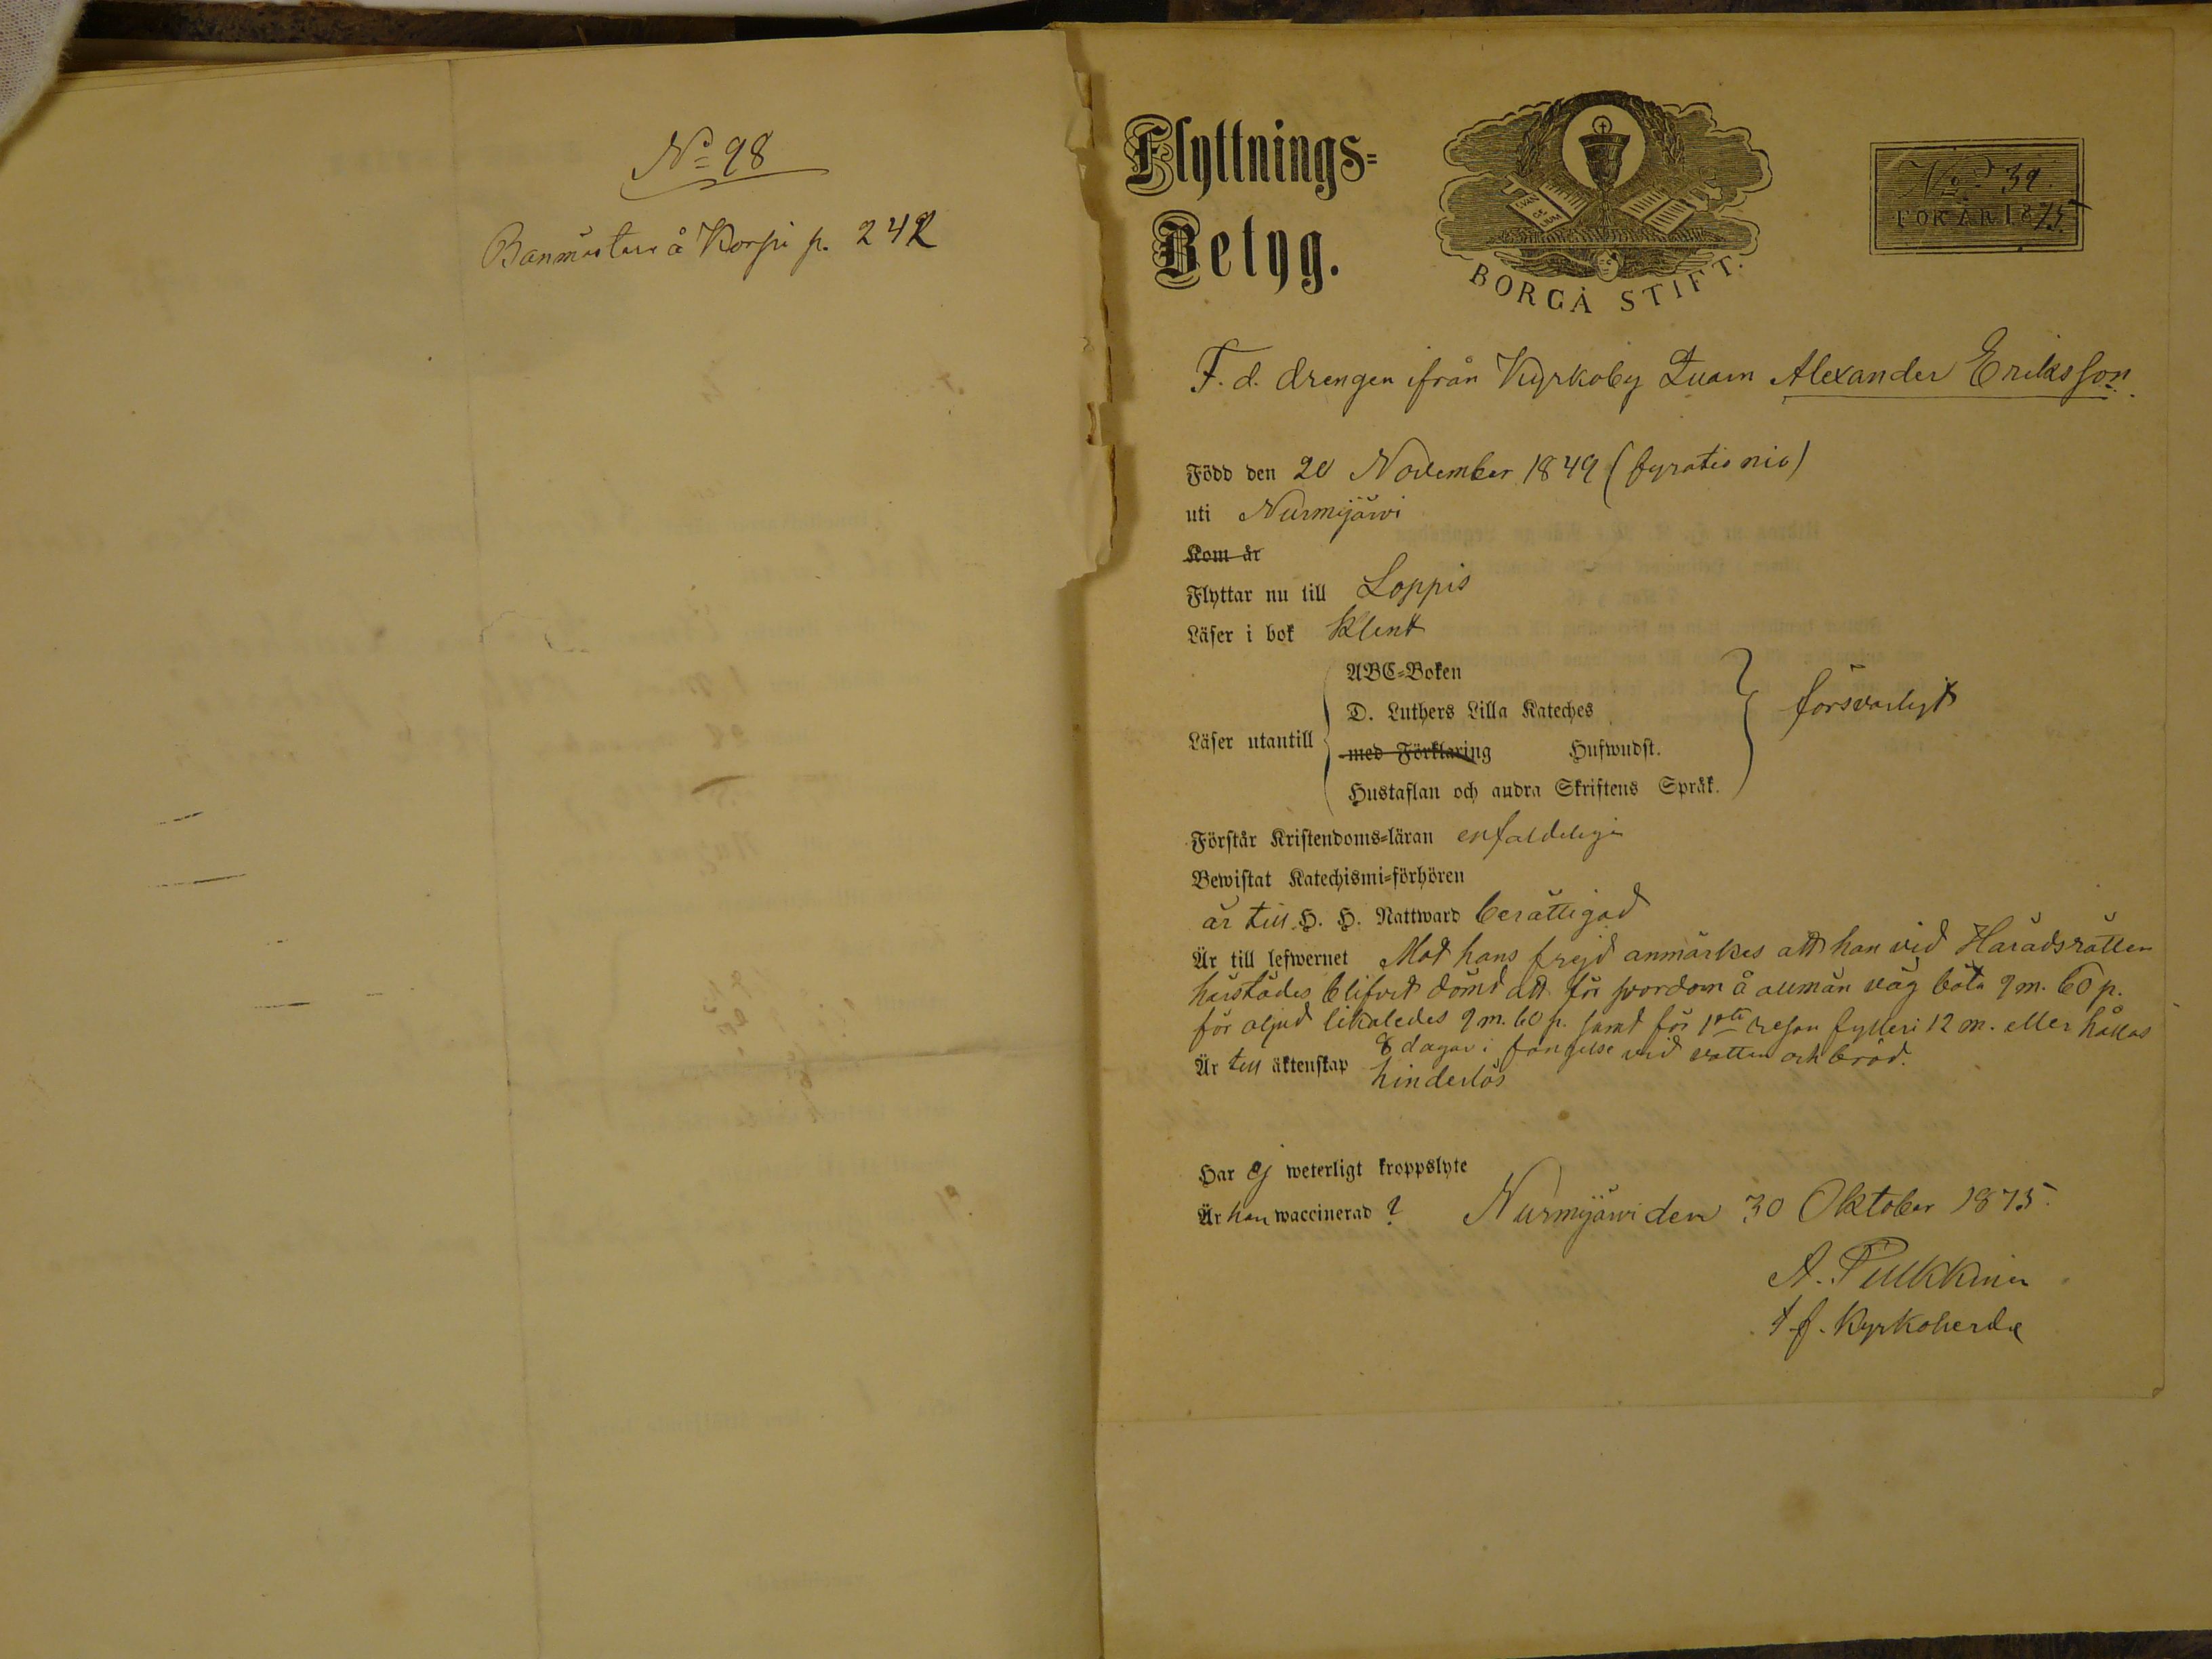 No 98
Banmästare å Korpi p. 242
Flyttnings-
Betyg.
EVAN
GE
LIUM
BORGÅ STIFT.
No 39.
FÖR ÅR 1875.
F. d. drengen ifrån Kyrkoby Alexander Eriksson.
Född den 20 November 1849 (fyratio nio)
uti Nurmijärvi
Kom år
Flyttar nu till Loppis
Läser i bok klent
ABC-Boken
D. Luthers Lilla Kateches
Läser utantill
försvarligt
med Förklaring Hufwudst.
Hustaflan och andra Skriftens Språk.
Förstår Kristendoms-läran enfaldeligen
Bewistat Katechismi-förhören
är till H. H. Nattward berättigad
Är till lefwernet Mot hans frejd anmärkes att han vid Häradsrätten
härstädes blifvit dömd att för svordom å allmän väg böta 9 m. 60 p.
för oljud likaledes 9 m. 60 p. samt för 1sta resan fylleri 12 m. eller hållas
8 dagar i fängelse vid vatten och bröd.
Är till äktenskap hinderlös
Har ej weterligt kroppslyte
Är han waccinerad ? Nurmijärvi den 30 Oktober 1875.
A. Pulkkinen
t. f. Kyrkoherde